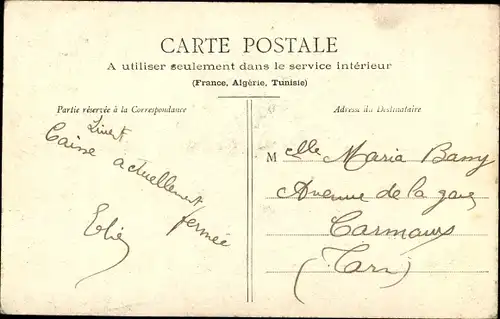 CARTE POSTALE
A utiliser seulement dans le service intérieur
(France, Algérie, Tunisie)
Partie réservée à la Correspondance
Caisse actuellement
fermée
Elie
Adresse du Destinataire
Melle Maria Bamy
Avenue de la gare
Carmaux
(Tarn)